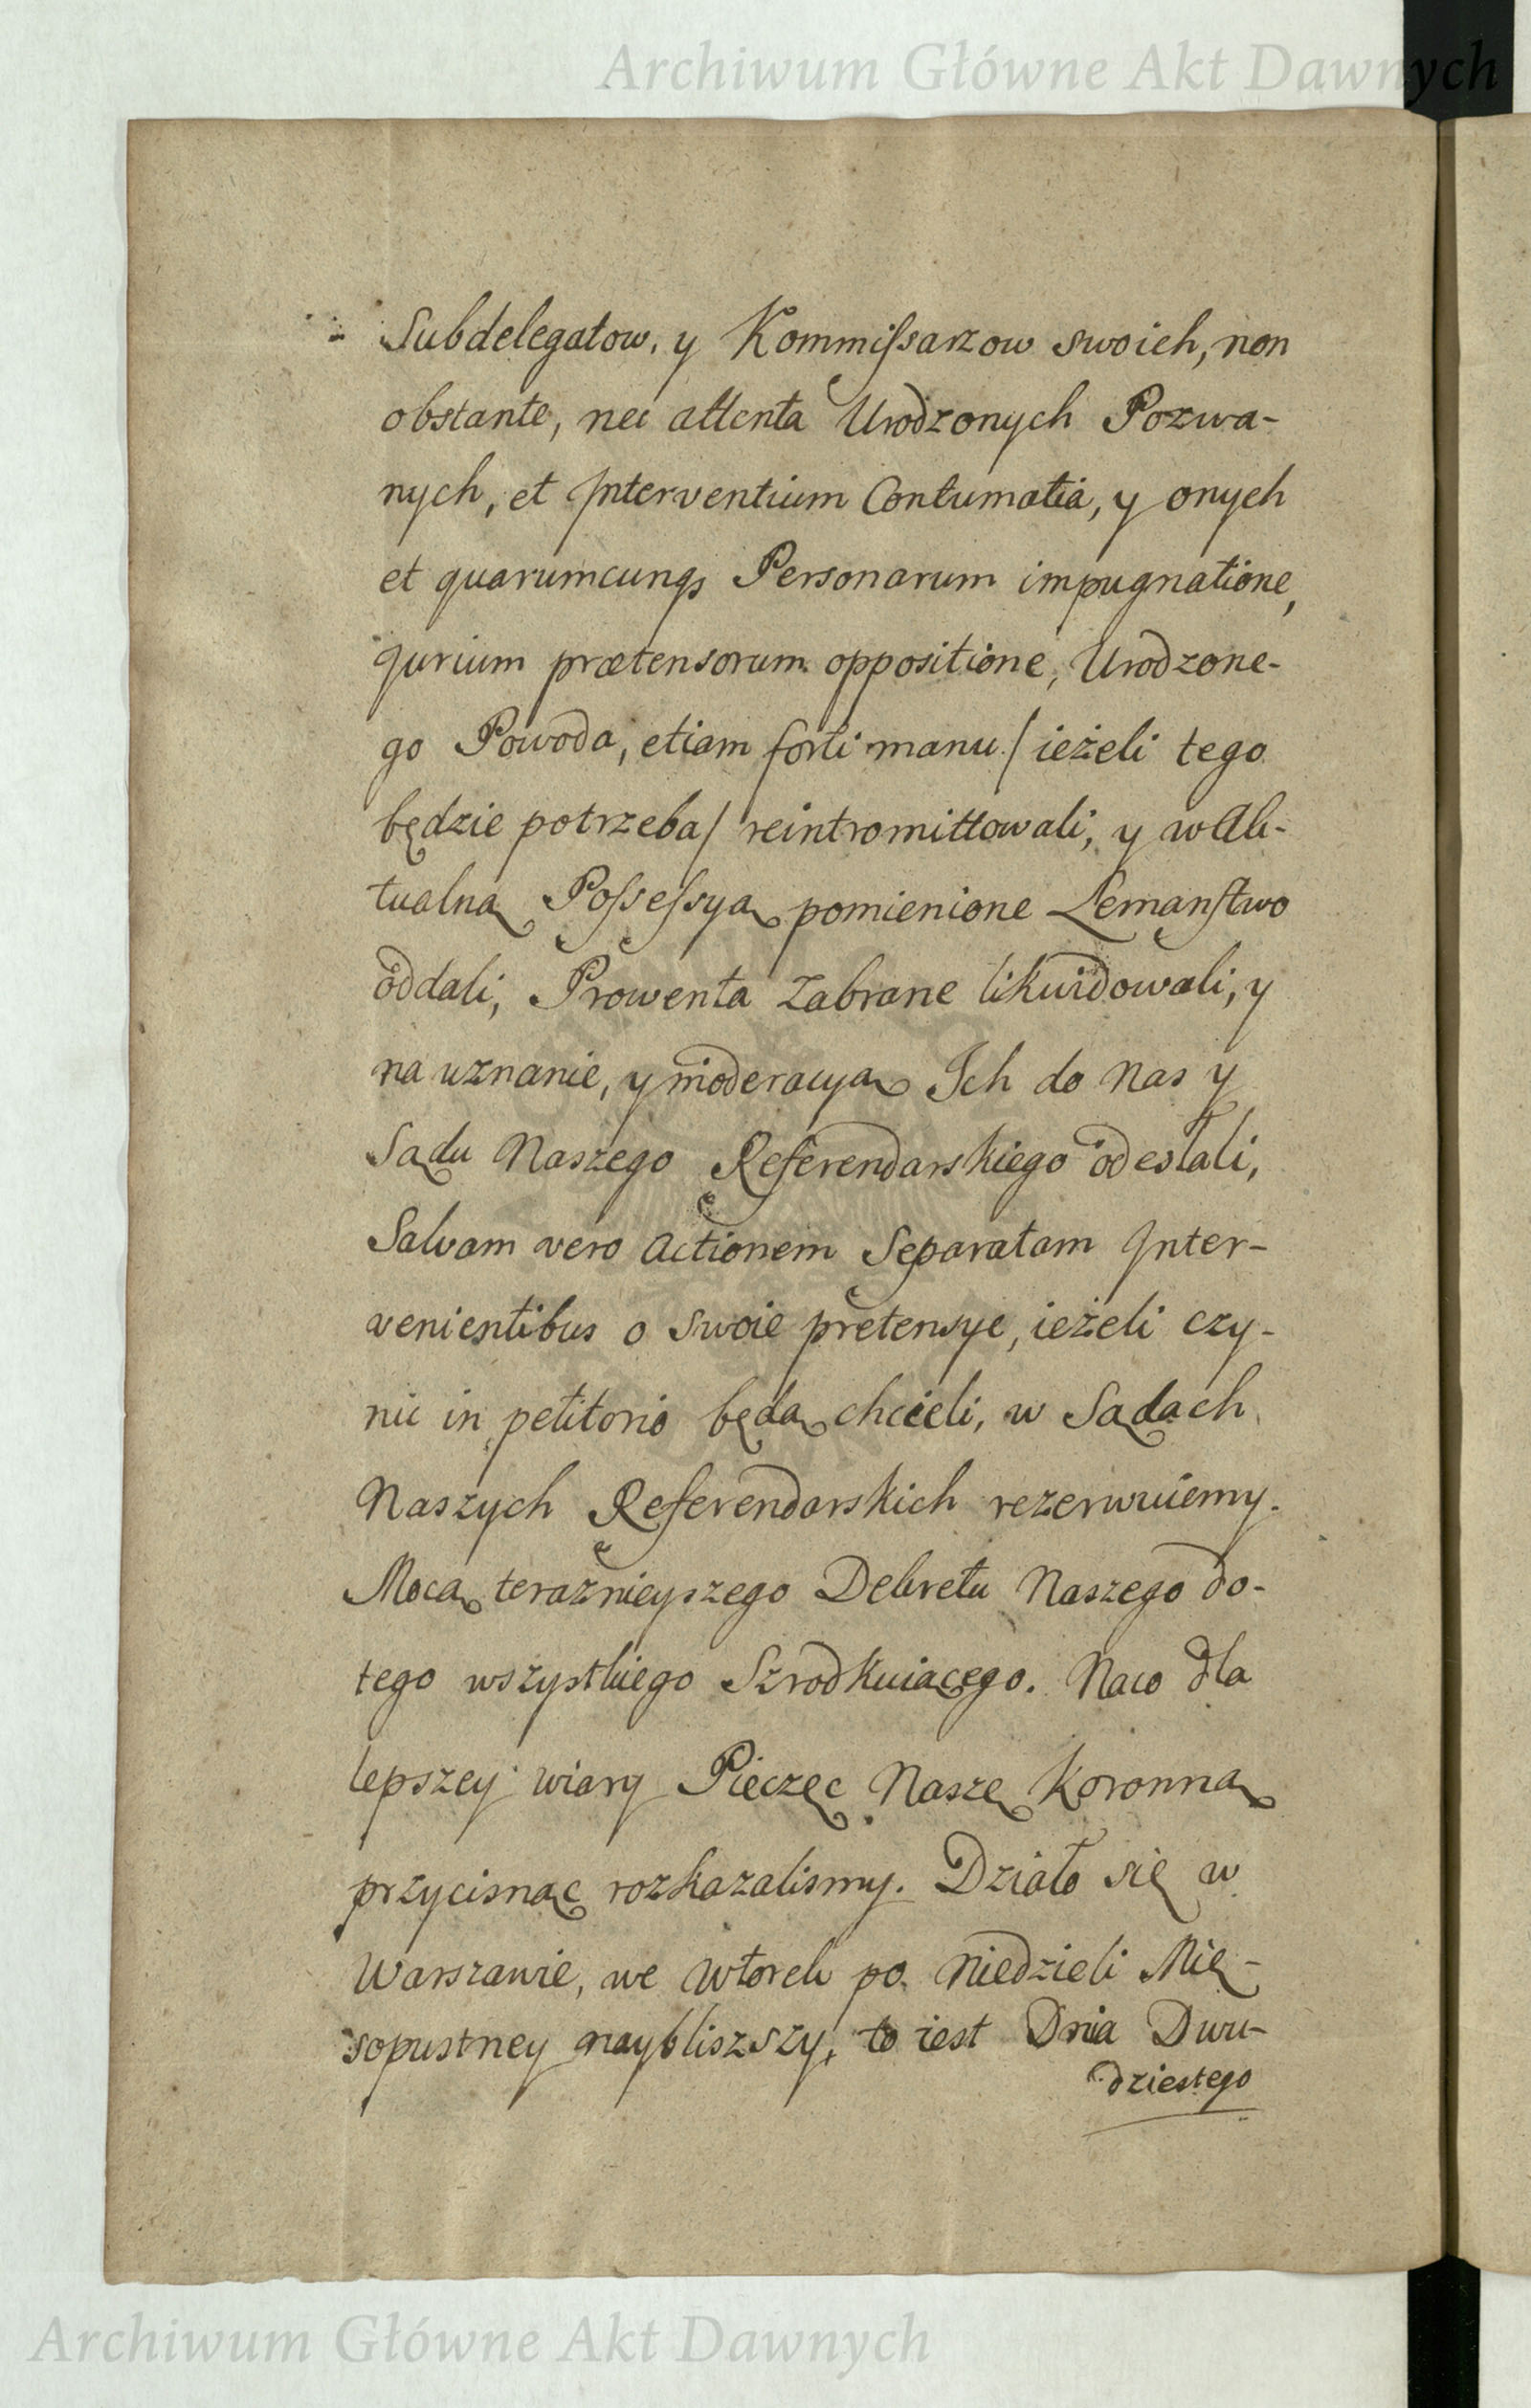 Archiwum Główne Akt Dawnych
Subdelegatow, y Kommiſsarzow swoich, non
obstante, nec attenta Urodzonych Pozwa-
nych, et Interventium Contumatia, y onych
et quarumcunqꝫ Personarum impugnatione,
Jurium prætensorum oppositione, Urodzone-
go Powoda, etiam forti manu / ieżeli tego
będzie potrzeba / reintromittowali, y w Ak-
tualną Poſseſsyą pomienione Lemaństwo
oddali, Prowenta zabrane likwidowali, y
na uznanie, y moderacyą Ich do Nas y
Sądu Naszego Referendarskiego odesłali,
Salvam vero Actionem Separatam Inter-
venientibus o swoie pretensye, ieżeli czy-
nić in petitorio będą chcieli, w Sądach
Naszych Referendarskich rezerwuiemy.
Mocą teraźnieyszego Dekretu Naszego do-
tego wszystkiego Szrodkuiącego. Naco dla
lepszey wiary Pieczęć Naszę Koronną
przycisnąć rozkazalismy. Działo się w
Warszawie, we Wtorek po Niedzieli Mię-
sopustney naybliszszy, to iest Dnia Dwu-
dziestego
Archiwum Główne Akt Dawnych